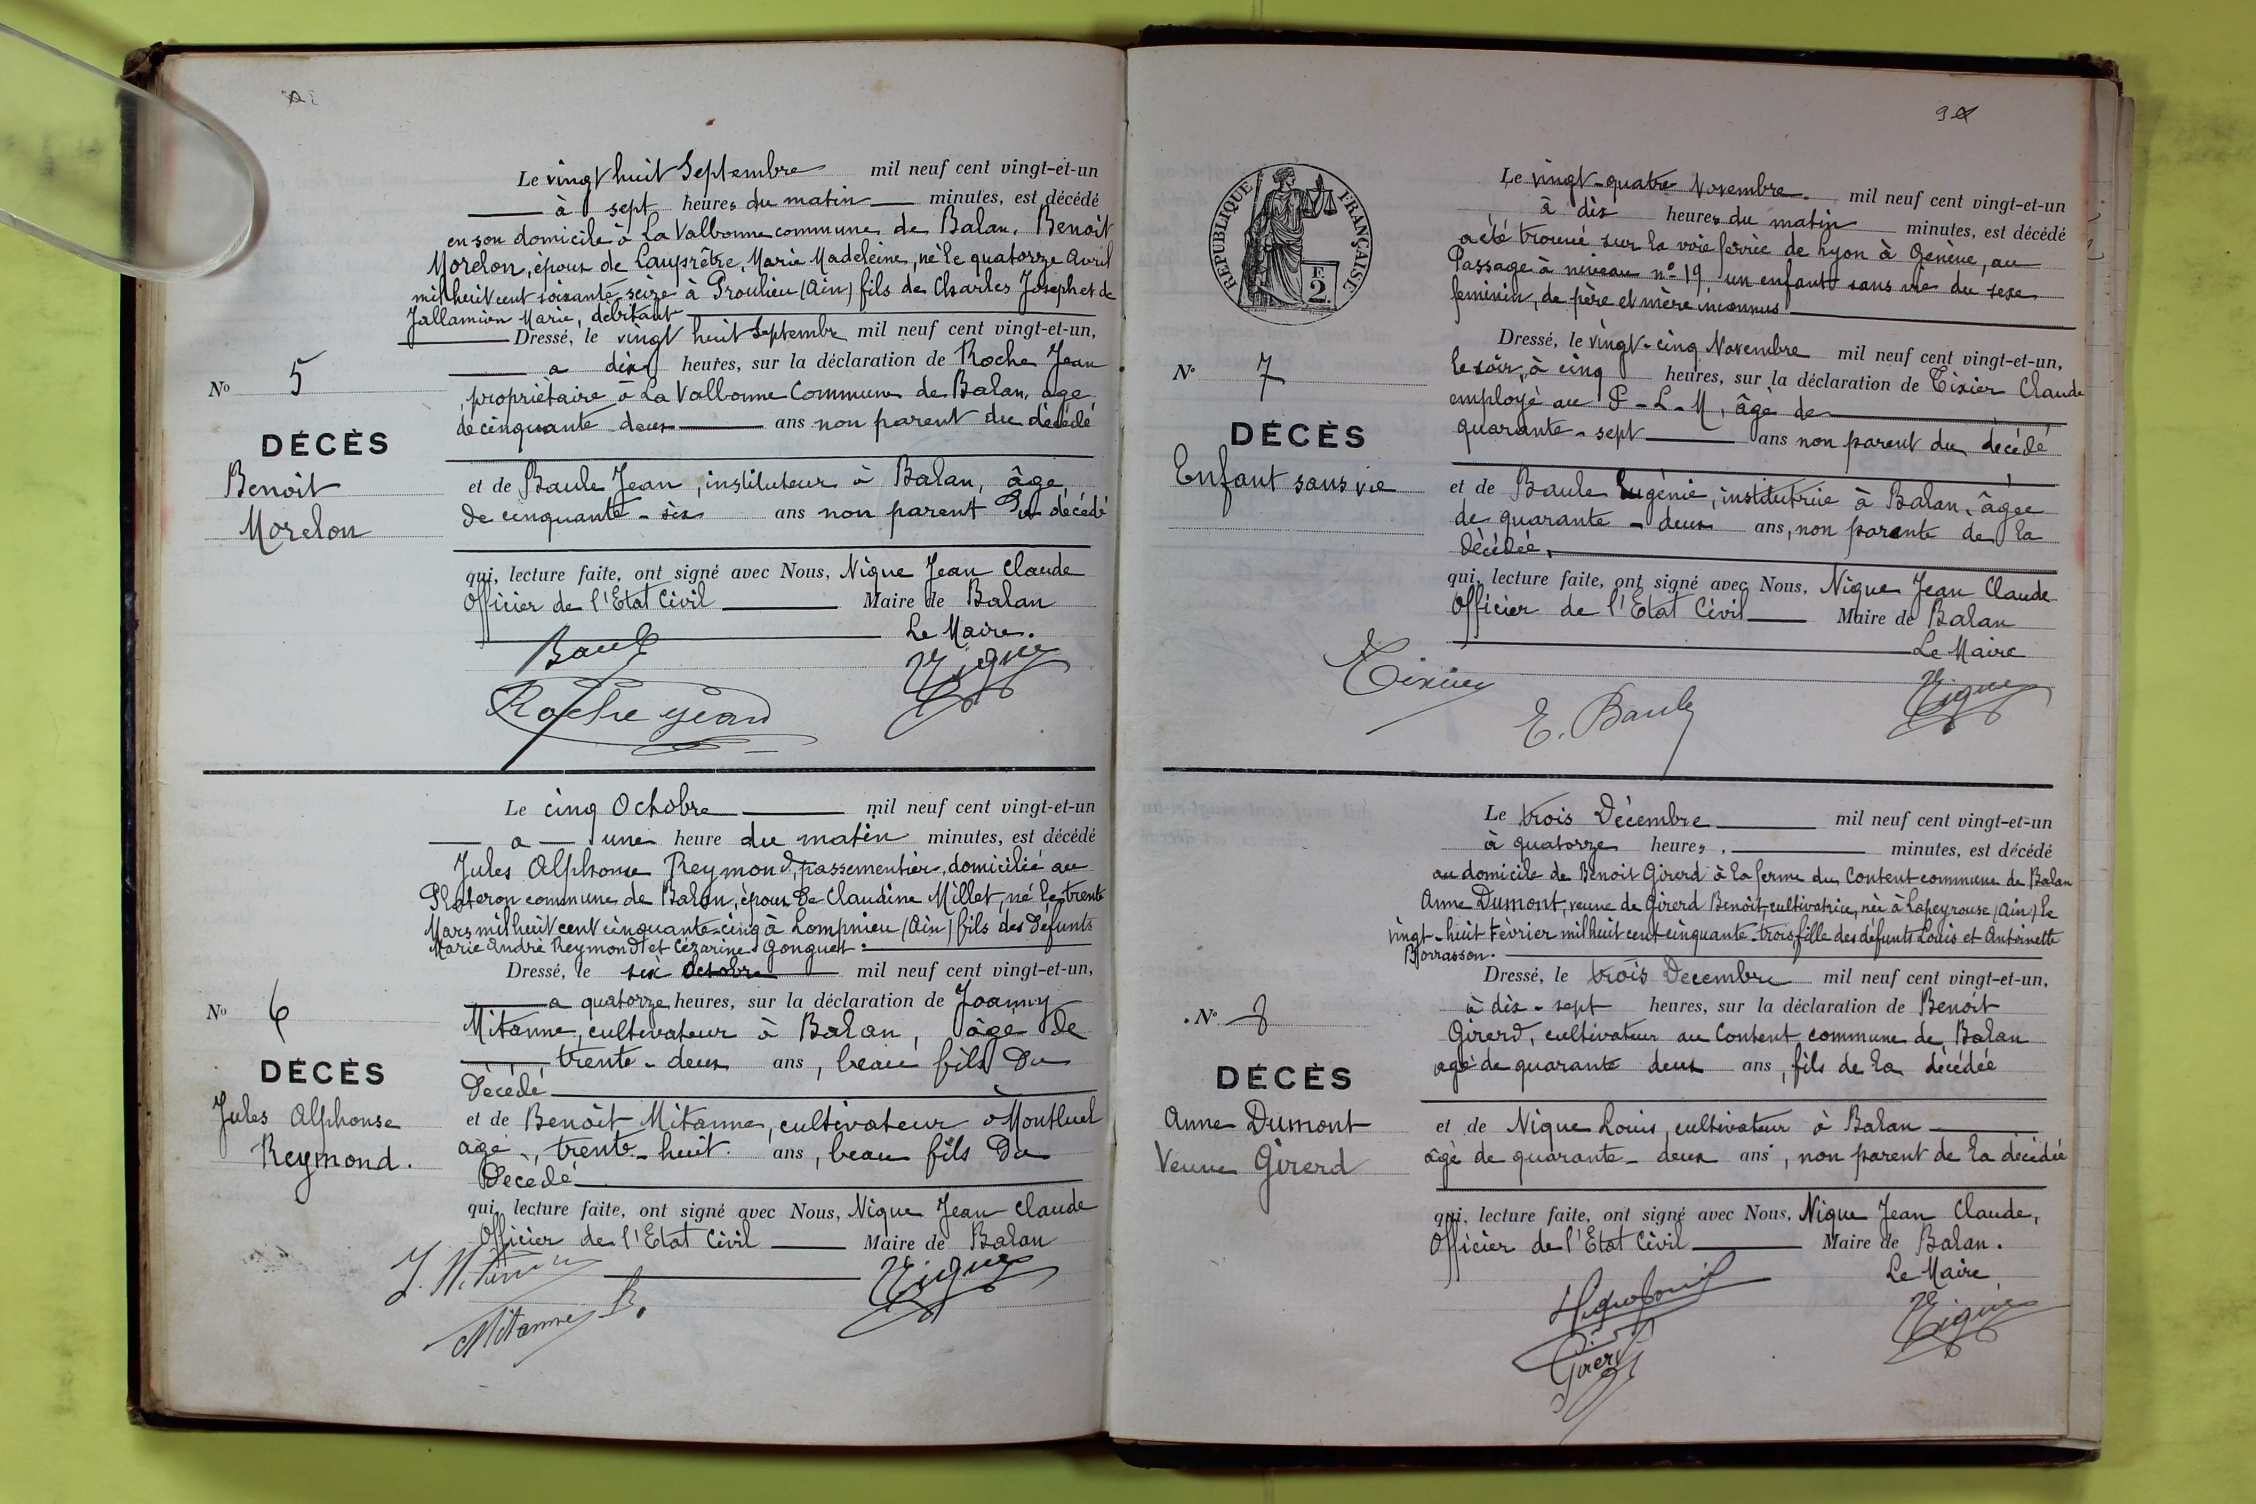 Le vingt huit Septembre mil neuf cent vingt-et-un
à sept heures du matin minutes, est décédé
en son domicile à La Valbonne commune de Balan, Benoit
Morelon, époux de Lauprêtre, Marie Madeleine, né le quatorze Avril
mil huit cent soixante seize à Proulieu (Ain) fils de Charles Joseph et de
Jallamion Marie, débitant
Dressé, le vingt huit Septembre mil neuf cent vingt-et-un,
a dix heures, sur la déclaration de Roche Jean
propriétaire à La Valbonne Commune de Balan, âgé
de cinquante deux ans non parent du décédé
No 5
DÉCÈS
Benoit
Morelon
et de Baule Jean, instituteur à Balan, âgé
de cinquante-six ans non parent du décédé
qui, lecture faite, ont signé avec Nous, Nique Jean Claude
Officier de l'Etat Civil Maire de Balan
Le Maire.
Baule
Nique
Roche Jean
Le cinq Octobre mil neuf cent vingt-et-un
a une heure du matin minutes, est décédé
Jules Alphonse Reymond, passementier, domicilié au
commune de Balan, époux de Claudine Millet, né le trente
Mars mil huit cent cinquante-cinq à Lompnieu (Ain) fils des défunts
Marie André Reymond et Cézarine Gonguet.
Dressé, le six Octobre mil neuf cent vingt-et-un,
a quatorze heures, sur la déclaration de Joanny
Mitanne, cultivateur à Balan, âgé de
trente-deux ans, beau fils du
Décédé
No 6
DÉCÈS
Jules Alphonse
Reymond.
et de Benoît Mitanne, cultivateur à Montluel
agé, trente-huit ans, beau fils du
Décédé
qui, lecture faite, ont signé avec Nous, Nique Jean Claude
Officier de l'Etat Civil Maire de Balan
Nique
Mitanne B.
9
RÉPUBLIQUE FRANÇAISE
F.
2
Le vingt-quatre Novembre. mil neuf cent vingt-et-un
à dix heures du matin minutes, est décédé
a été trouvé sur la voie ferrée de Lyon à Genève, au
Passage à niveau no 19 un enfant sans vie du sexe
feminin, de père et mère inconnus
Dressé, le vingt-cinq Novembre mil neuf cent vingt-et-un,
le soir, à cinq heures, sur la déclaration de Tixier Claude
employé au P-L-M, âgé de
quarante-sept ans non parent du decédé
No 7
DÉCÈS
Enfant sans vie
et de Baule Eugénie, institutrice à Balan, âgée
de quarante-deux ans, non parente de la
décédée,
qui, lecture faite, ont signé avec Nous, Nique Jean Claude
Officier de l'Etat Civil Maire de Balan
Le Maire
Tixier
E. Baule
Nique
Le trois Décembre mil neuf cent vingt-et-un
à quatorze heures. minutes, est décédé
au domicile de Benoit Girerd à la ferme du Content commune de Balan
Anne Dumont, veuve de Girerd Benoît, cultivatrice, née à Lapeyrouse (Ain) le
vingt-huit Février mil huit cent cinquante-trois, fille des défunts Louis et Antoinette
Borrasson.
Dressé, le trois Decembre mil neuf cent vingt-et-un,
à dix-sept heures, sur la déclaration de Benoît
Girerd, cultivateur au Content commune de Balan
agé de quarante deux ans, fils de la décédée
No 8
DÉCÈS
Anne Dumont
Veuve Girerd
et de Nique Louis, cultivateur à Balan
âgé de quarante-deux ans, non parent de la décédée
qui, lecture faite, ont signé avec Nous, Nique Jean Claude,
Officier de l'Etat Civil Maire de Balan.
Le Maire,
Nique Louis
Nique
Girerd